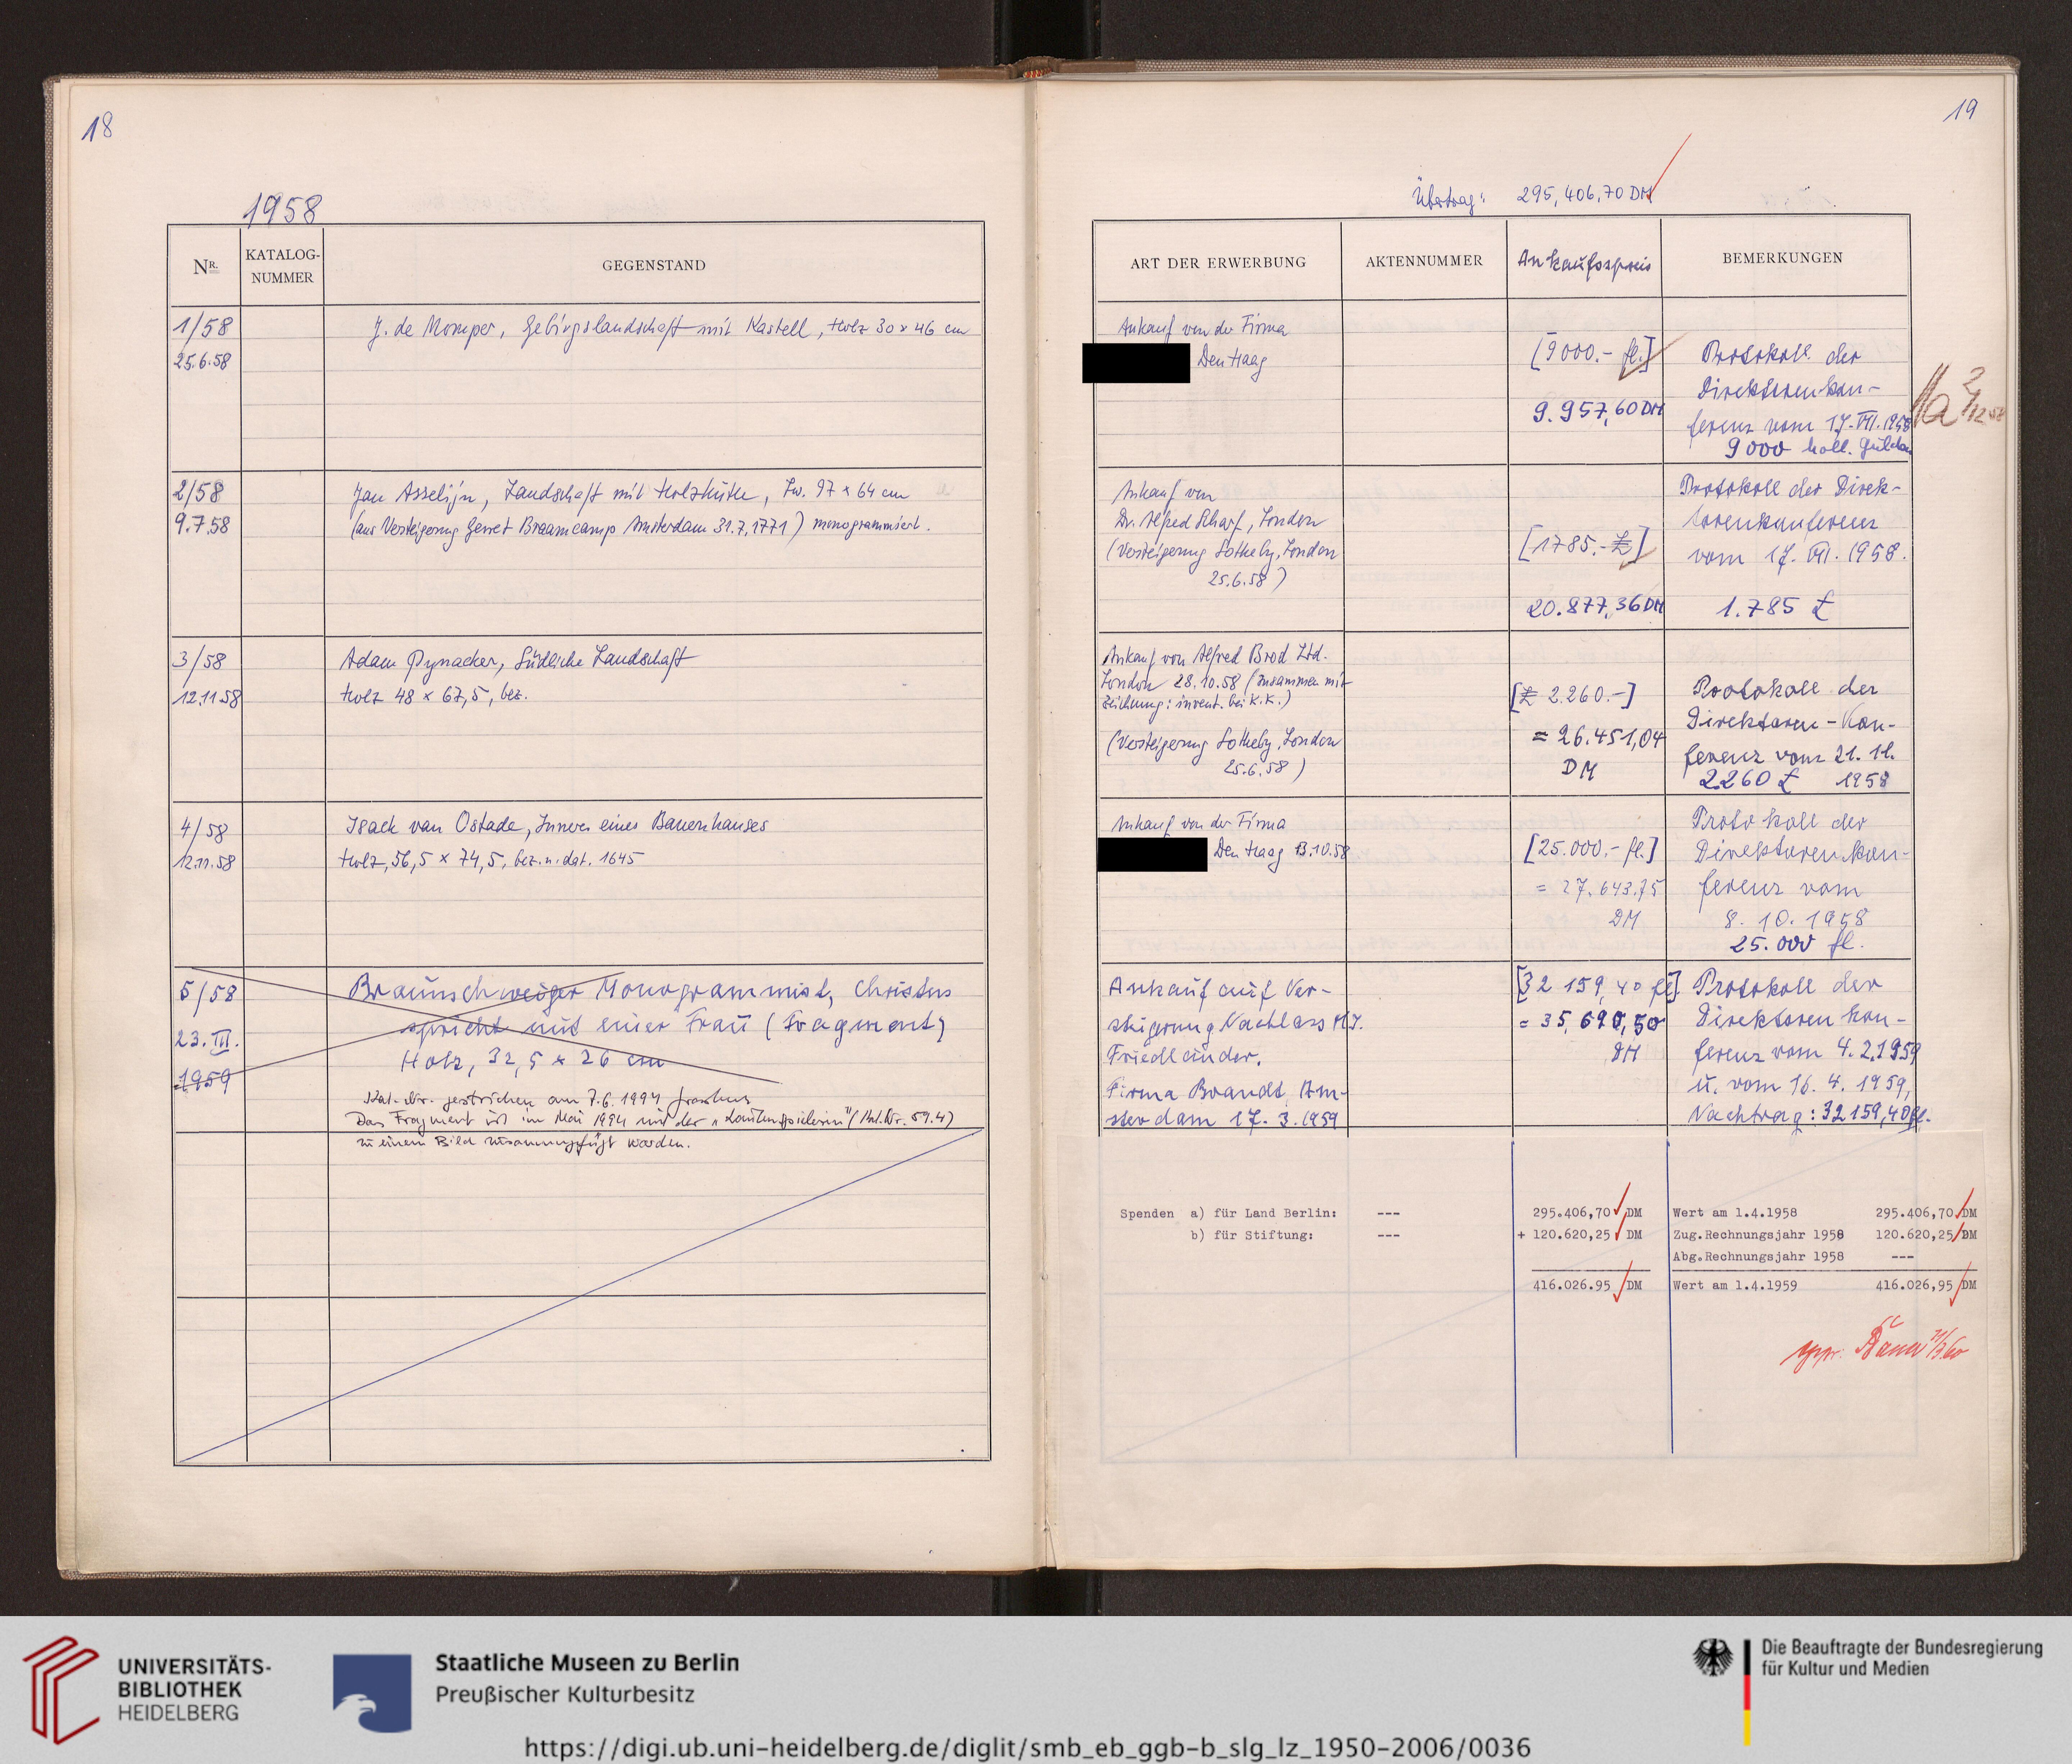 18
1958
NR.
KATALOG-
NUMMER
GEGENSTAND
1/58
25.6.58
J. de Momper, Gebirgslandschaft mit Kastell, Holz 30 x 46 cm
2/58
9.7.58
Jan Asselijn, Landschaft mit Holzhütte, Lw. 97 x 64 cm
(aus Versteigerung Gerret Braamcamp Amsterdam 31.7.1771) monogrammiert.
3/58
12.11.58
Adam Pynacker, Südliche Landschaft
Holz 48 x 67,5, bez.
4/58
12.11.58
Isack van Ostade, Inneres eines Bauernhauses
Holz, 56,5 x 74,5, bez. u. dat. 1645
5/58
23. III.
1959
Braunschweiger Monogrammist, Christus
spricht mit einer Frau (Fragment)
Holz, 32,5 x 26 cm
Kat.-Nr. gestrichen am 7.6.1994
Das Fragment ist im Mai 1994 mit der "Lautenspielerin" (Kat.Nr. 59.4)
zu einem Bild zusammengefügt worden.
19
Übertrag: 295,406,70 DM
ART DER ERWERBUNG
AKTENNUMMER
Ankaufspreis
BEMERKUNGEN
Ankauf von der Firma
Den Haag
[9000.- fl.]
9.957,60 DM
Protokoll der
Direktorenkon-
ferenz vom 17. VII. 1958
9000 holl. Gulden
Ankauf von
Dr. Alfred Scharf, London
(Versteigerung Sotheby, London
25.6.58)
[1785.- £]
20.877,36 DM
Protokoll der Direk-
torenkonferenz
vom 17. VII. 1958.
1.785 £
Ankauf von Alfred Brod Ltd.
London 28.10.58 (zusammen mit
Zeichnung: invent. bei K.K.)
(Versteigerung Sotheby, London
25.6.58)
[£ 2.260.-]
= 26.451,04
DM
Protokoll der
Direktoren-Kon-
ferenz vom 21. 11.
2.260 £ 1958
Ankauf von der Firma
Den Haag 13.10.58
[25.000.- fl.]
= 27.643,75
DM
Protokoll der
Direktorenkon-
ferenz vom
8. 10. 1958
25.000 fl.
Ankauf auf Ver-
steigerung Nachlass M.J.
Friedländer.
Firma Brandt, Am-
sterdam 17. 3. 1959
[32 159,40 fl.]
= 35,690,50
DM
Protokoll der
Direktoren kon-
ferenz vom 4. 2. 1959
u. vom 16. 4. 1959,
Nachtrag: 32159,40 fl.
Spenden a) für Land Berlin: ---
b) für Stiftung: ---
295.406,70 DM
+ 120.620,25 DM
416.026.95 DM
Wert am 1.4.1958 295.406,70 DM
Zug.Rechnungsjahr 1958 120.620,25 DM
Abg.Rechnungsjahr 1958 ---
Wert am 1.4.1959 416.026,95 DM
UNIVERSITÄTS-
BIBLIOTHEK
HEIDELBERG
Staatliche Museen zu Berlin
Preußischer Kulturbesitz
Die Beauftragte der Bundesregierung
für Kultur und Medien
https://digi.ub.uni-heidelberg.de/diglit/smb_eb_ggb-b_slg_lz_1950-2006/0036